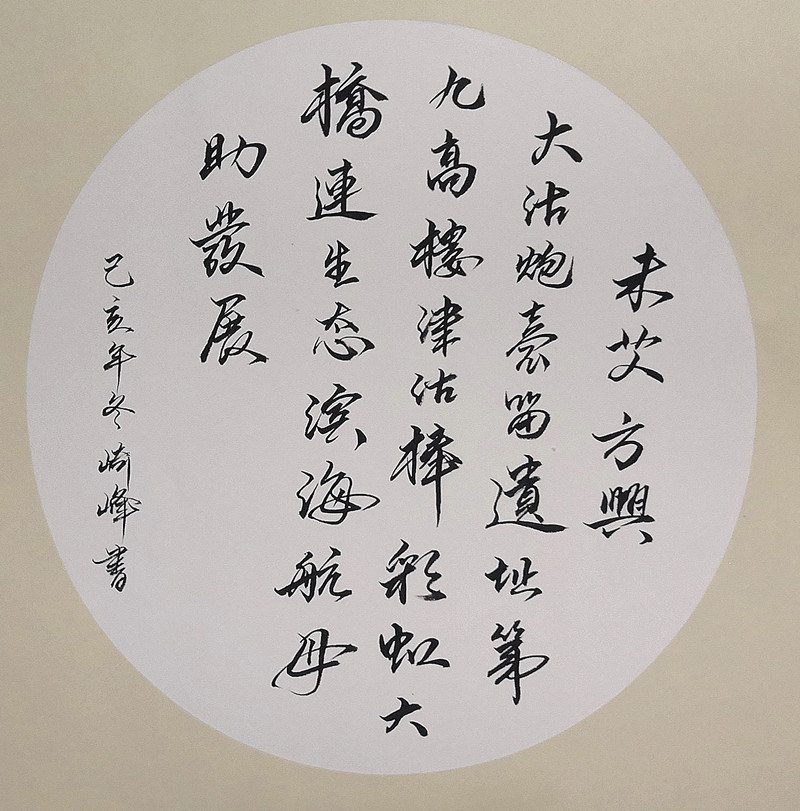 未艾方興
大沽炮臺留遺址第
九高樓津沽棒彩虹大
橋連生态濱海航母
助發展
己亥年冬崎峰書